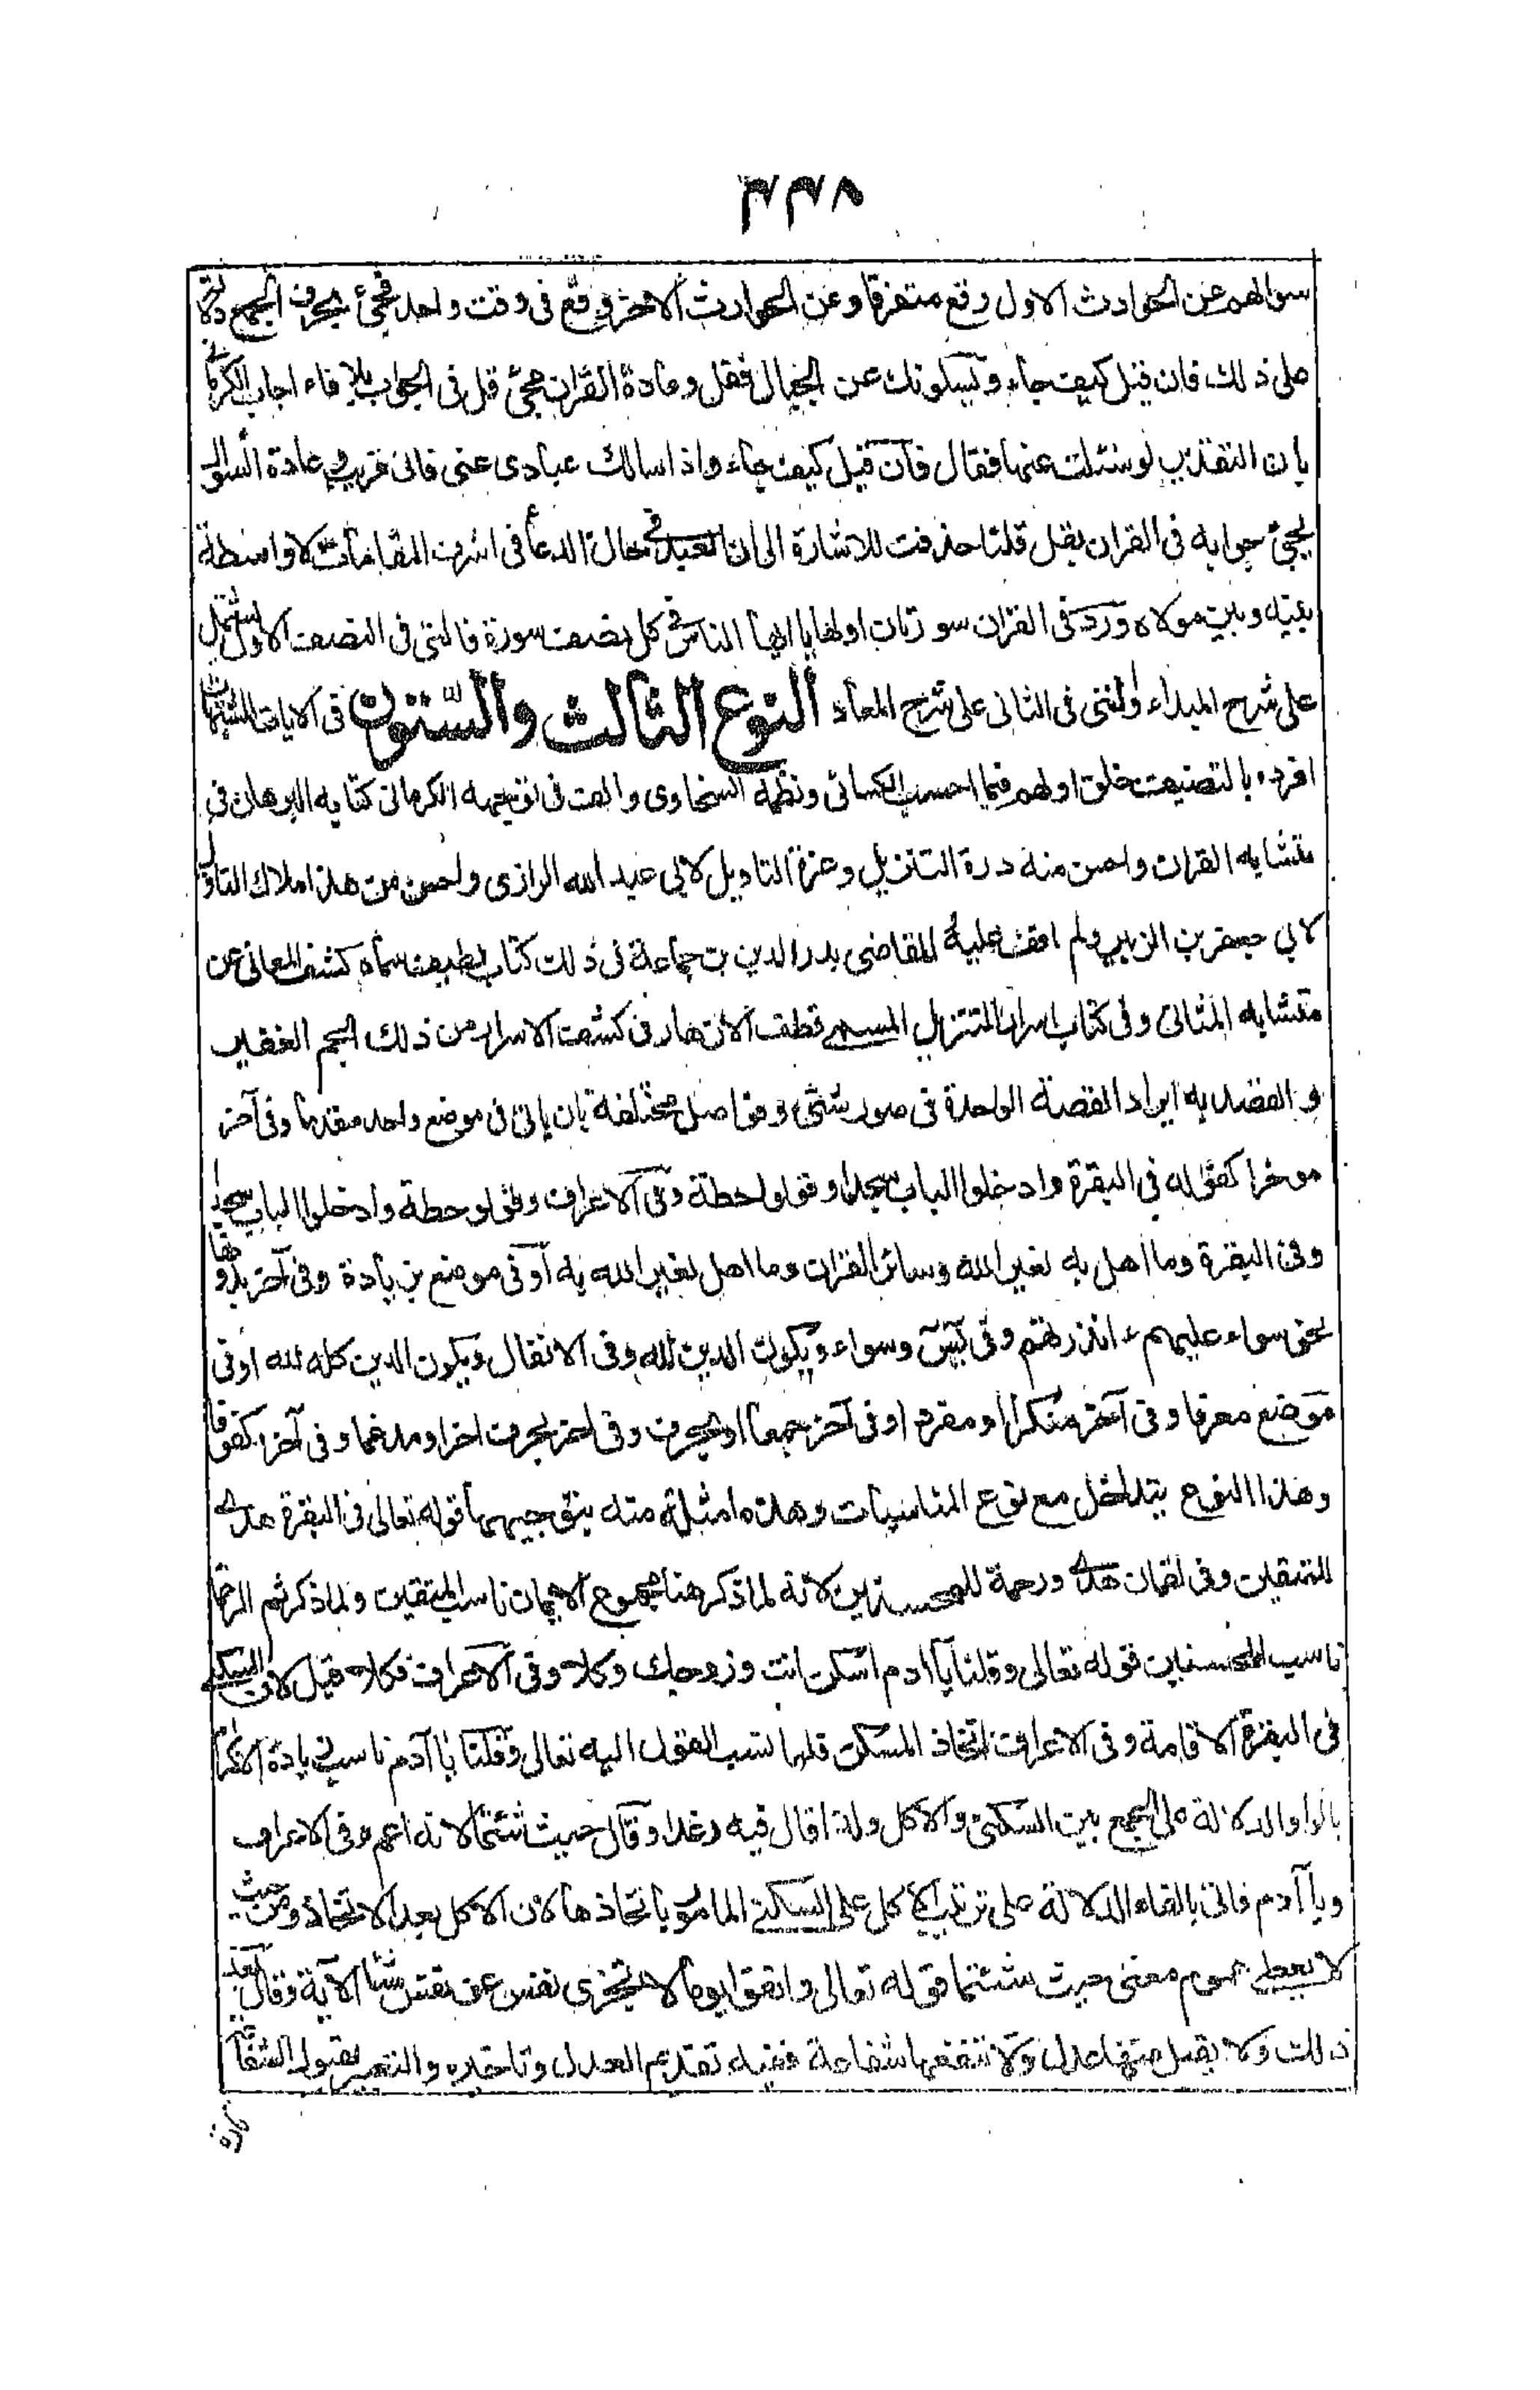 ٣٣٨
سوالهم عن الحوادث الاول وقع متفرقا وعن الحوادث الاخر وقع فى وقت واحد فجئ بحرف الجمع دلالة
على ذلك فان قيل كيف جاء ويسئلونك عن الجبال فقل وعادة القران مجئ قل فى الجواب بلا فاء اجاب الكرمانى
بان التقدير لو سئلت عنها فقال فان قيل كيف جاء واذا سالك عبادى عنى فانى قريب وعادة السوال
يجئ جوابه فى القران بقل قلنا حذفت للاشارة الى ان العبد فى حالة الدعا فى اشرف المقامات لا واسطة
بينه وبين مولاه ورد فى القران سورتان اولهما يا ايها الناس فى كل نصف سورة فالتى فى النصف الاول تشتمل
على شرح المبداء والتى فى الثانى على شرح المعاد النوع الثالث والستون فى الايات المشتبهات
افرده بالتصنيف خلق اولهم فيما احسب الكسائى ونظمه السخاوى والف فى توجيهه الكرمانى كتابه البرهان فى
متشابه القران واحسن منه درة التنزيل وغرة التاويل لابى عبد الله الرازى واحسن من هذا ملاك التاويل
لابى جعفر بن الزبير ولم اقف عليه للقاضى بدر الدين بن جماعة فى ذلك كتاب لطيف سماه كشف المعانى عن
متشابه المثانى وفى كتاب اسرار التنزيل المسمى قطف الازهار فى كشف الاسرار من ذلك الجم الغفير
والقصد به ايراد القصة الواحدة فى صور شتى وفواصل مختلفة بان ياتى فى موضع واحد مقدما وفى آخر
موخرا كقوله فى البقرة وادخلوا الباب سجدا وقولوا حطة وفى الاعراف وقولوا حطة وادخلوا الباب سجدا
وفى البقرة وما اهل به لغير الله وسائر القران وما اهل لغير الله به او فى موضع بزيادة وفى آخر بدونها
نحو سواء عليهم ءانذرتهم وفى يٰس وسواء ويكون الدين لله وفى الانفال ويكون الدين كله لله او فى
موضع معرفا وفى آخر منكرا او مفردا وفى آخر جمعا او بحرف وفى اخر بحرف اخر او مدغما وفى آخر مفكوكا
وهذا النوع يتداخل مع نوع المناسبات وهذه امثلة منه بتوجيهها قوله تعالى فى البقرة هدى
للمتقين وفى لقمان هدى ورحمة للمحسنين لانه لما ذكر هنا مجموع الايمان ناسب المتقين ولما ذكر ثم الرحمة
ناسب المحسنين قوله تعالى وقلنا يا ادم اسكن انت وزوجك وكلا وفى الاعراف فكلا قيل لان السكنى
فى البقرة الاقامة وفى الاعراف اتخاذ المسكن فلما نسب القول اليه تعالى وقلنا يا آدم ناسب زيادة الاكرام
بالواو الدلالة على الجمع بين السكنى والاكل ولذا قال فيه رغدا وقال حيث شئتما لانه اعم وفى الاعراف
ويا آدم فاتى بالفاء الدلالة على ترتيب الاكل على السكنى المامور باتخاذها لان الاكل بعد الاتخاذ ومن حيث
لا يعطى عموم معنى حيث شئتما قوله تعالى واتقوا يوما لا تجزى نفس عن نفس شيئا الآية وقال بعد
ذلك ولا يقبل منها عدل ولا تنفعها شفاعة ففيه تقديم العدل وتاخيره والتعبير بقبول الشفاعة